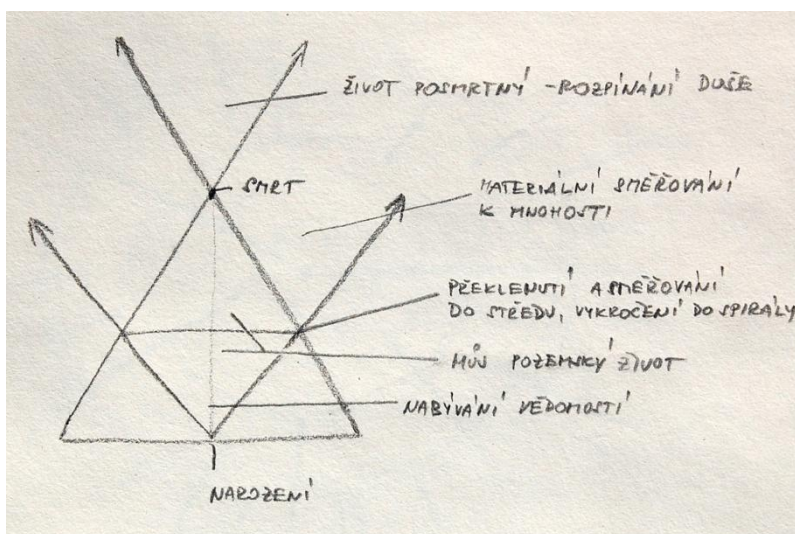 ŽIVOT POSMRTNÝ - ROZPÍNÁNÍ DUŠE
SMRT
MATERIÁLNÍ SMĚŘOVÁNÍ
K MNOHOSTI
PŘEKLENUTÍ A SMĚŘOVÁNÍ
DO STŘEDU, VYKROČENÍ DO SPIRÁLY
MŮJ POZEMSKÝ ŽIVOT
NABÝVÁNÍ VĚDOMOSTÍ
NAROZENÍ